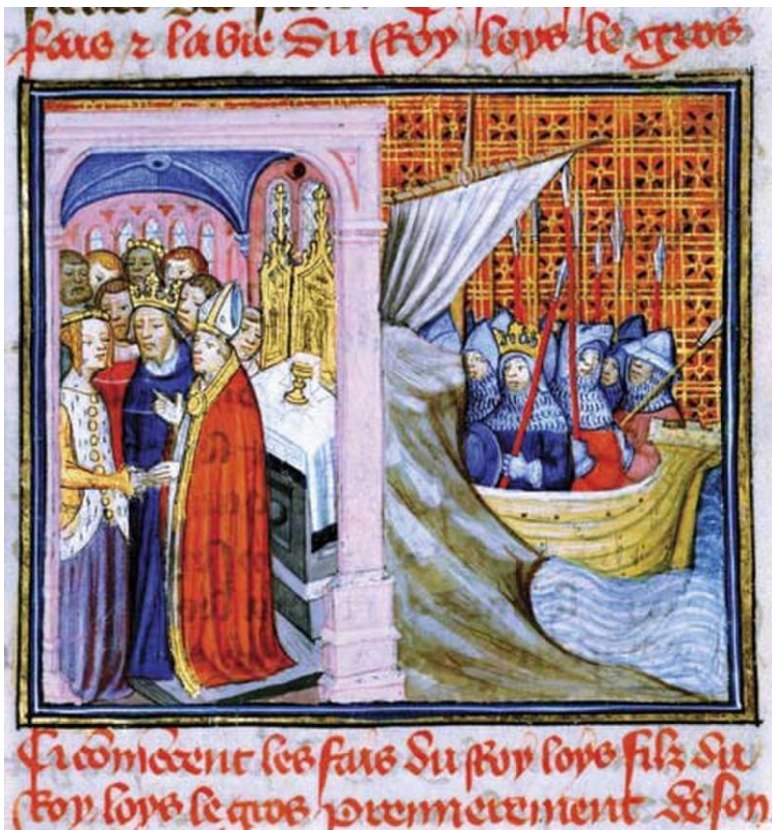 fais ⁊ la vie du Roy loys le gros
Cy cõmecent les fais du Roy loys filz du
Roy loys le gros premierement de son